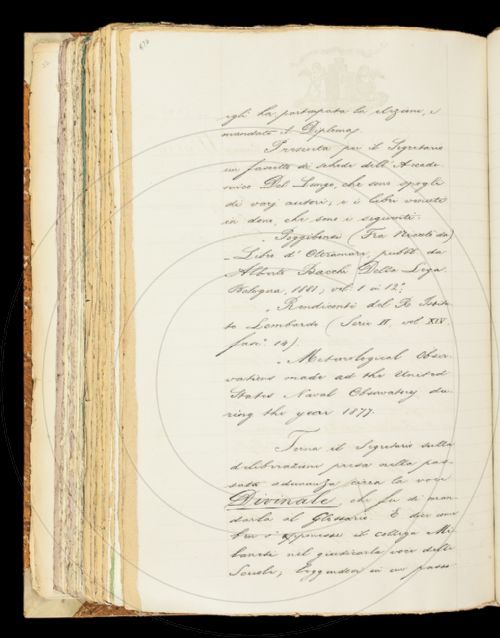 egli ha partecipata la elezione, e
mandato il Diploma.
Presenta per il Segretario
un fascetto di schede dell'Accade-
mico Del Lungo, che sono spogli
di varj autori; e i libri venuti
in dono, che sono i seguenti:
Poggibonsi (Fra Niccolò da)
- Libro d'Oltramare, pubbl. da
Alberto Bacchi Della Lega.
Bologna, 1881, vol. 1 in 12.º
Rendiconti del R. Istitu-
to Lombardo (Serie II, vol XIV.
fasc.º 14).
Meteorological Obser-
vations made at the United
States Naval Observatory du-
ring the year 1877.
Torna il Segretario sulla
deliberazione presa nella pas-
sata adunanza circa la voce
Divinale, che fu di man-
darla al Glossario. E dice come
si opponesse il collega Mi-
lanesi nel giudicarla voce delle
Scuole; leggendosi in un passo